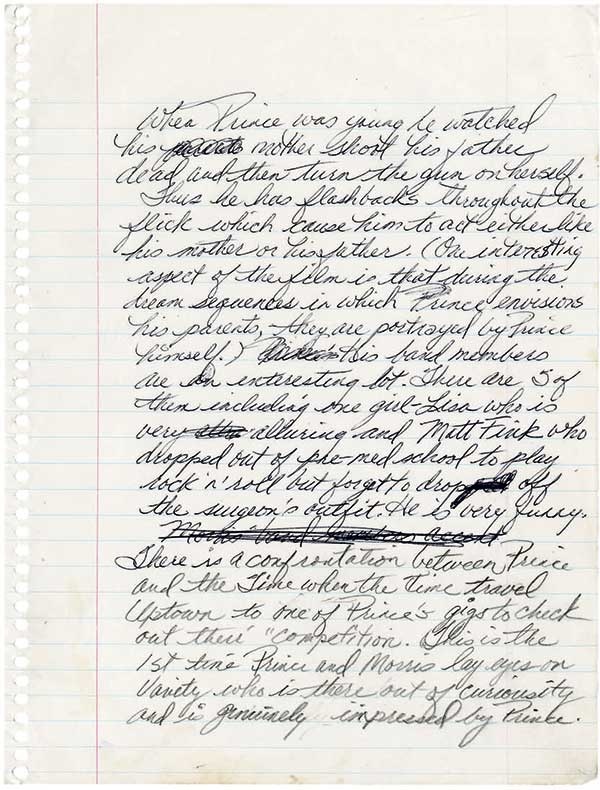 When Prince was young he watched
his mother shoot his father
dead and then turn the gun on herself.
Thus he has flashbacks throughout the
flick which cause him to act either like
his mother or his father. (One interesting
aspect of the film is that during the
dream sequences in which Prince envisions
his parents, they are portrayed by Prince
himself.) His band members
are an interesting lot. There are 5 of
them including one girl-Lisa who is
very alluring and Matt Fink who
dropped out of pre-med school to play
rock 'n' roll but forgot to drop off
the surgeon's outfit. He is very funny.
There is a confrontation between Prince
and the Time when the Time travel
Uptown to one of Prince's gigs to check
out their "competition. This is the
1st time Prince and Morris lay eyes on
Vanity who is there out of curiousity
and is genuinely impressed by Prince.